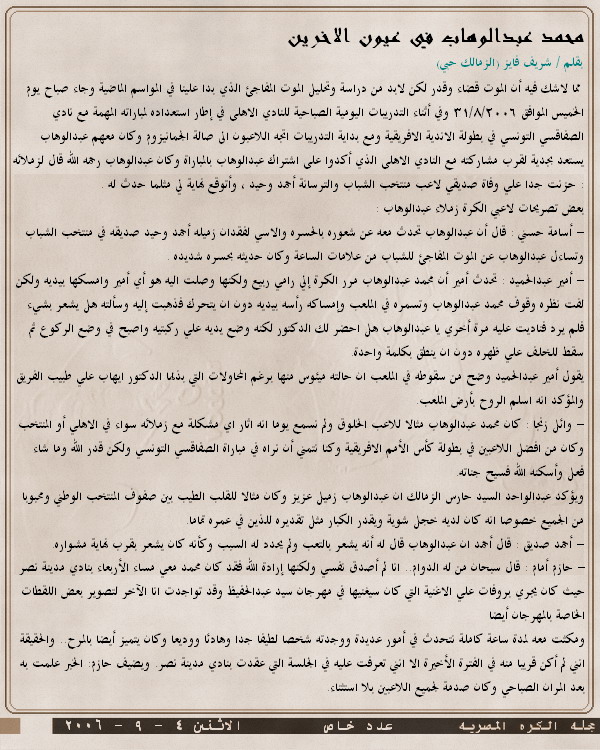 محمد عبدالوهاب في عيون الاخرين
بقلم / شريف فايز (الزمالك حبي)
مما لاشك فيه أن الموت قضاء وقدر لكن لابد من دراسة وتحليل الموت المفاجئ الذي بدا علينا في المواسم الماضية وجاء صباح يوم
الخميس الموافق ٣١/٨/٢٠٠٦ وفي أثناء التدريبات اليومية الصباحية للنادي الاهلي في إطار استعداده لمباراته المهمة مع نادي
الصفاقسي التونسي في بطولة الاندية الافريقية ومع بداية التدريبات اتجه اللاعبون الي صالة الجمانيزوم وكان معهم عبدالوهاب
يستعد بجدية لقرب مشاركته مع النادي الاهلي الذي أكدوا علي اشتراك عبدالوهاب بالمباراة وكان عبدالوهاب رحمه الله قال لزملائه
: حزنت جدا علي وفاة صديقي لاعب منتخب الشباب والترسانة أحمد وحيد ، وأتوقع نهاية لي مثلما حدث له .
بعض تصريحات لاعبي الكرة زملاء عبدالوهاب :
– أسامة حسني : قال أن عبدالوهاب تحدث معه عن شعوره بالحسره والاسي لفقدان زميله أحمد وحيد صديقه في منتخب الشباب
وتساءل عبدالوهاب عن الموت المفاجئ للشباب من علامات الساعة وكان حديثه بحسره شديده .
– أمير عبدالحميد : تحدث أمير أن محمد عبدالوهاب مرر الكرة إلي رامي ربيع ولكنها وصلت اليه هو أي أمير وامسكها بيديه ولكن
لفت نظره وقوف محمد عبدالوهاب وتسمره في الملعب وإمساكه رأسه بيديه دون ان يتحرك فذهبت إليه وسألته هل يشعر بشيء
فلم يرد فناديت عليه مرة أخري يا عبدالوهاب هل احضر لك الدكتور لكنه وضع يديه علي ركبتيه واصبح في وضع الركوع ثم
سقط للخلف علي ظهره دون ان ينطق بكلمة واحدة.
يقول أمير عبدالحميد وضح من سقوطه في الملعب ان حالته ميئوس منها برغم المحاولات التي بذلها الدكتور ايهاب علي طبيب الفريق
والمؤكد انه اسلم الروح بأرض الملعب.
– وائل رنجا : كان محمد عبدالوهاب مثالا للاعب الخلوق ولم نسمع يوما انه اثار اي مشكلة مع زملائه سواء في الاهلي أو المنتخب
وكان من افضل اللاعبين في بطولة كأس الأمم الافريقية وكنا نتمني أن نراه في مباراة الصفاقسي التونسي ولكن قدر الله وما شاء
فعل وأسكنه الله فسيح جناته.
ويؤكد عبدالواحد السيد حارس الزمالك ان عبدالوهاب زميل عزيز وكان مثالا للقلب الطيب بين صفوف المنتخب الوطني ومحبوبا
من الجميع خصوصا انه كان لديه خجل شوية ويقدر الكبار مثل تقديره للذين في عمره تماما.
– أحمد صديق : قال أحمد ان عبدالوهاب قال له أنه يشعر بالتعب ولم يحدد له السبب وكأنه كان يشعر بقرب نهاية مشواره.
– حازم أمام : قال سبحان من له الدوام.. انا لم أصدق نفسي ولكنها إرادة الله فقد كان محمد معي مساء الأربعاء بنادي مدينة نصر
حيث كان يجري بروفات علي الاغنية التي كان سيغنيها في مهرجان سيد عبدالحفيظ وقد تواجدت انا الآخر لتصوير بعض اللقطات
الخاصة بالمهرجان أيضا
ومكثت معه لمدة ساعة كاملة نتحدث في أمور عديدة ووجدته شخصا لطيفا جدا وهادئا ووديعا وكان يتميز أيضا بالمرح.. والحقيقة
انني لم أكن قريبا منه في الفترة الأخيرة الا انني تعرفت عليه في الجلسة التي عقدت بنادي مدينة نصر. ويضيف حازم: الخبر علمت به
بعد المران الصباحي وكان صدمة لجميع اللاعبين بلا استثناء.
مجلة الكره المصريه عدد خاص الاثنين ٤ - ٩ - ٢٠٠٦